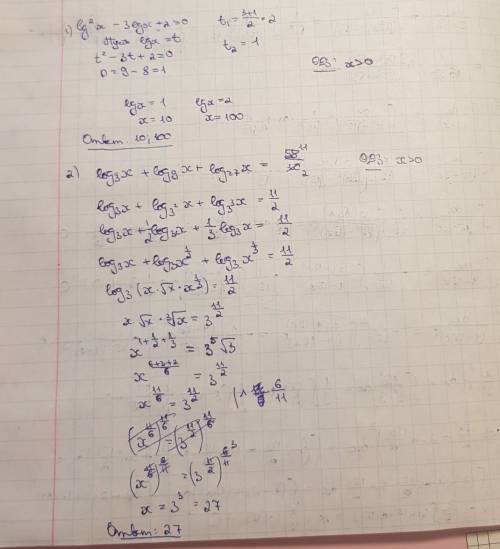 1) lg²x - 3lgx + 2 = 0 t₁ = (3+1)/2 = 2
Пусть lgx = t t₂ = 1
t² - 3t + 2 = 0
D = 9 - 8 = 1 ОДЗ: x>0
lgx = 1 lgx = 2
x = 10 x = 100
Ответ: 10, 100
2) log₃x + log₉x + log₂₇x = 55¹¹/10₂ ОДЗ: x>0
log₃x + log₃²x + log₃³x = 11/2
log₃x + 1/2 log₃x + 1/3 log₃x = 11/2
log₃x + log₃x^(1/2) + log₃x^(1/3) = 11/2
log₃(x·√x·x^(1/3)) = 11/2
x√x·∛x = 3^(11/2)
x^(1+1/2+1/3) = 3⁵√3
x^((6+3+2)/6) = 3^(11/2)
x^(11/6) = 3^(11/2) | ^ 6/11
(x^(11/6))^(6/11) = (3^(11/2))^(6/11)³
x = 3³ = 27
Ответ: 27